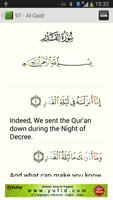 15:32
97 - Al-Qadr
سُورَةُ القَدْرِ
بِسْمِ اللَّهِ الرَّحْمَٰنِ الرَّحِيمِ
إِنَّا أَنزَلْنَاهُ فِي لَيْلَةِ الْقَدْرِ
Indeed, We sent the Qur'an
down during the Night of
Decree.
وَمَا أَدْرَاكَ مَا لَيْلَةُ الْقَدْرِ
And what can make you
Yufid
www.yufid.com